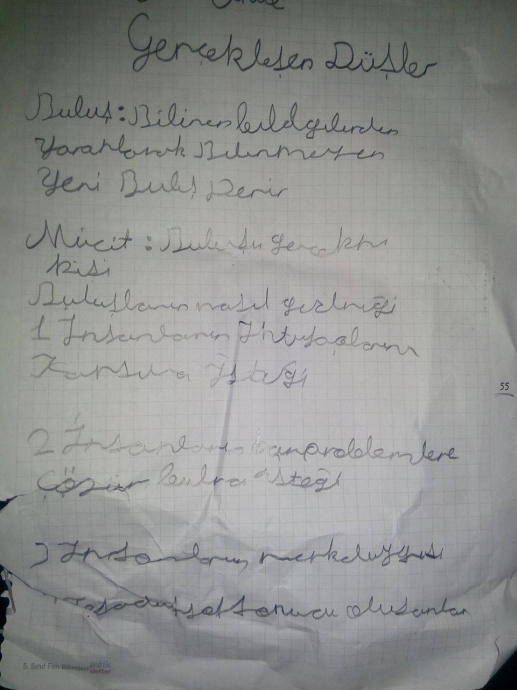 Gerçekleşen Düşler
Buluş: Bilinen bilgilerden
Yararlanarak Bilinmeyen
Yeni Buluş Denir
Mücit: Buluşu
kisi
Buluşların nasıl
1 İnsanların İhtiyaçlarını
Karşılama İsteği
55
2 İnsanların problemlere
Çözüm bulma isteği
3 İnsanların merak duygusu
sonucu oluşanlar
5. Sınıf Fen Bilimleri